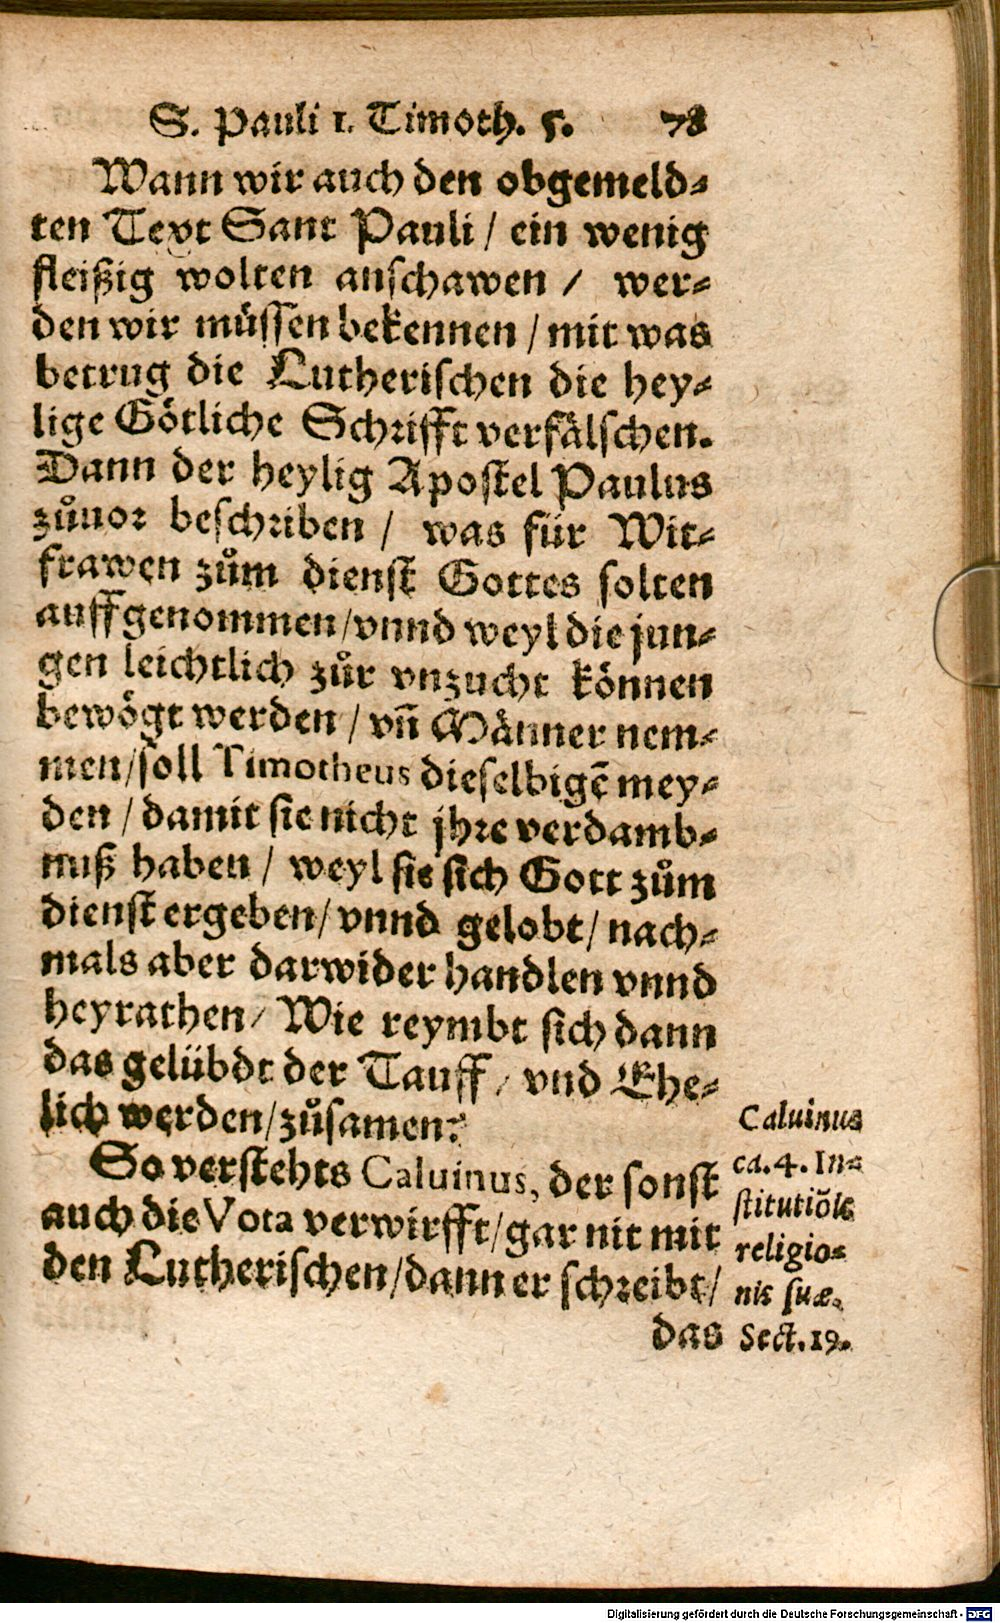 S. Pauli 1. Timoth. 5. 78
Wann wir auch den obgemeld⸗
ten Text Sant Pauli / ein wenig
fleißig wolten anschawen / wer⸗
den wir müssen bekennen / mit was
betrug die Lutherischen die hey⸗
lige Götliche Schrifft verfälschen.
Dann der heylig Apostel Paulus
zůuor beschriben / was für Wit⸗
frawen zům dienst Gottes solten
auffgenommen / vnnd weyl die jun⸗
gen leichtlich zůr vnzucht können
bewögt werden / vñ Männer nem⸗
men / soll Timotheus dieselbigē mey⸗
den / damit sie nicht jhre verdamb⸗
nuß haben / weyl sie sich Gott zům
dienst ergeben / vnnd gelobt / nach⸗
mals aber darwider handlen vnnd
heyrathen / Wie reymbt sich dann
das gelübdt der Tauff / vnd Ehe⸗
lich werden / zůsamen?
So verstehts Caluinus, der sonst
auch die Vota verwirfft / gar nit mit
den Lutherischen / dann er schreibt /
das
Caluinus
ca. 4. In⸗
stitutiõis
religio⸗
nis suæ.
Sect. 19.
Digitalisierung gefördert durch die Deutsche Forschungsgemeinschaft - DFG